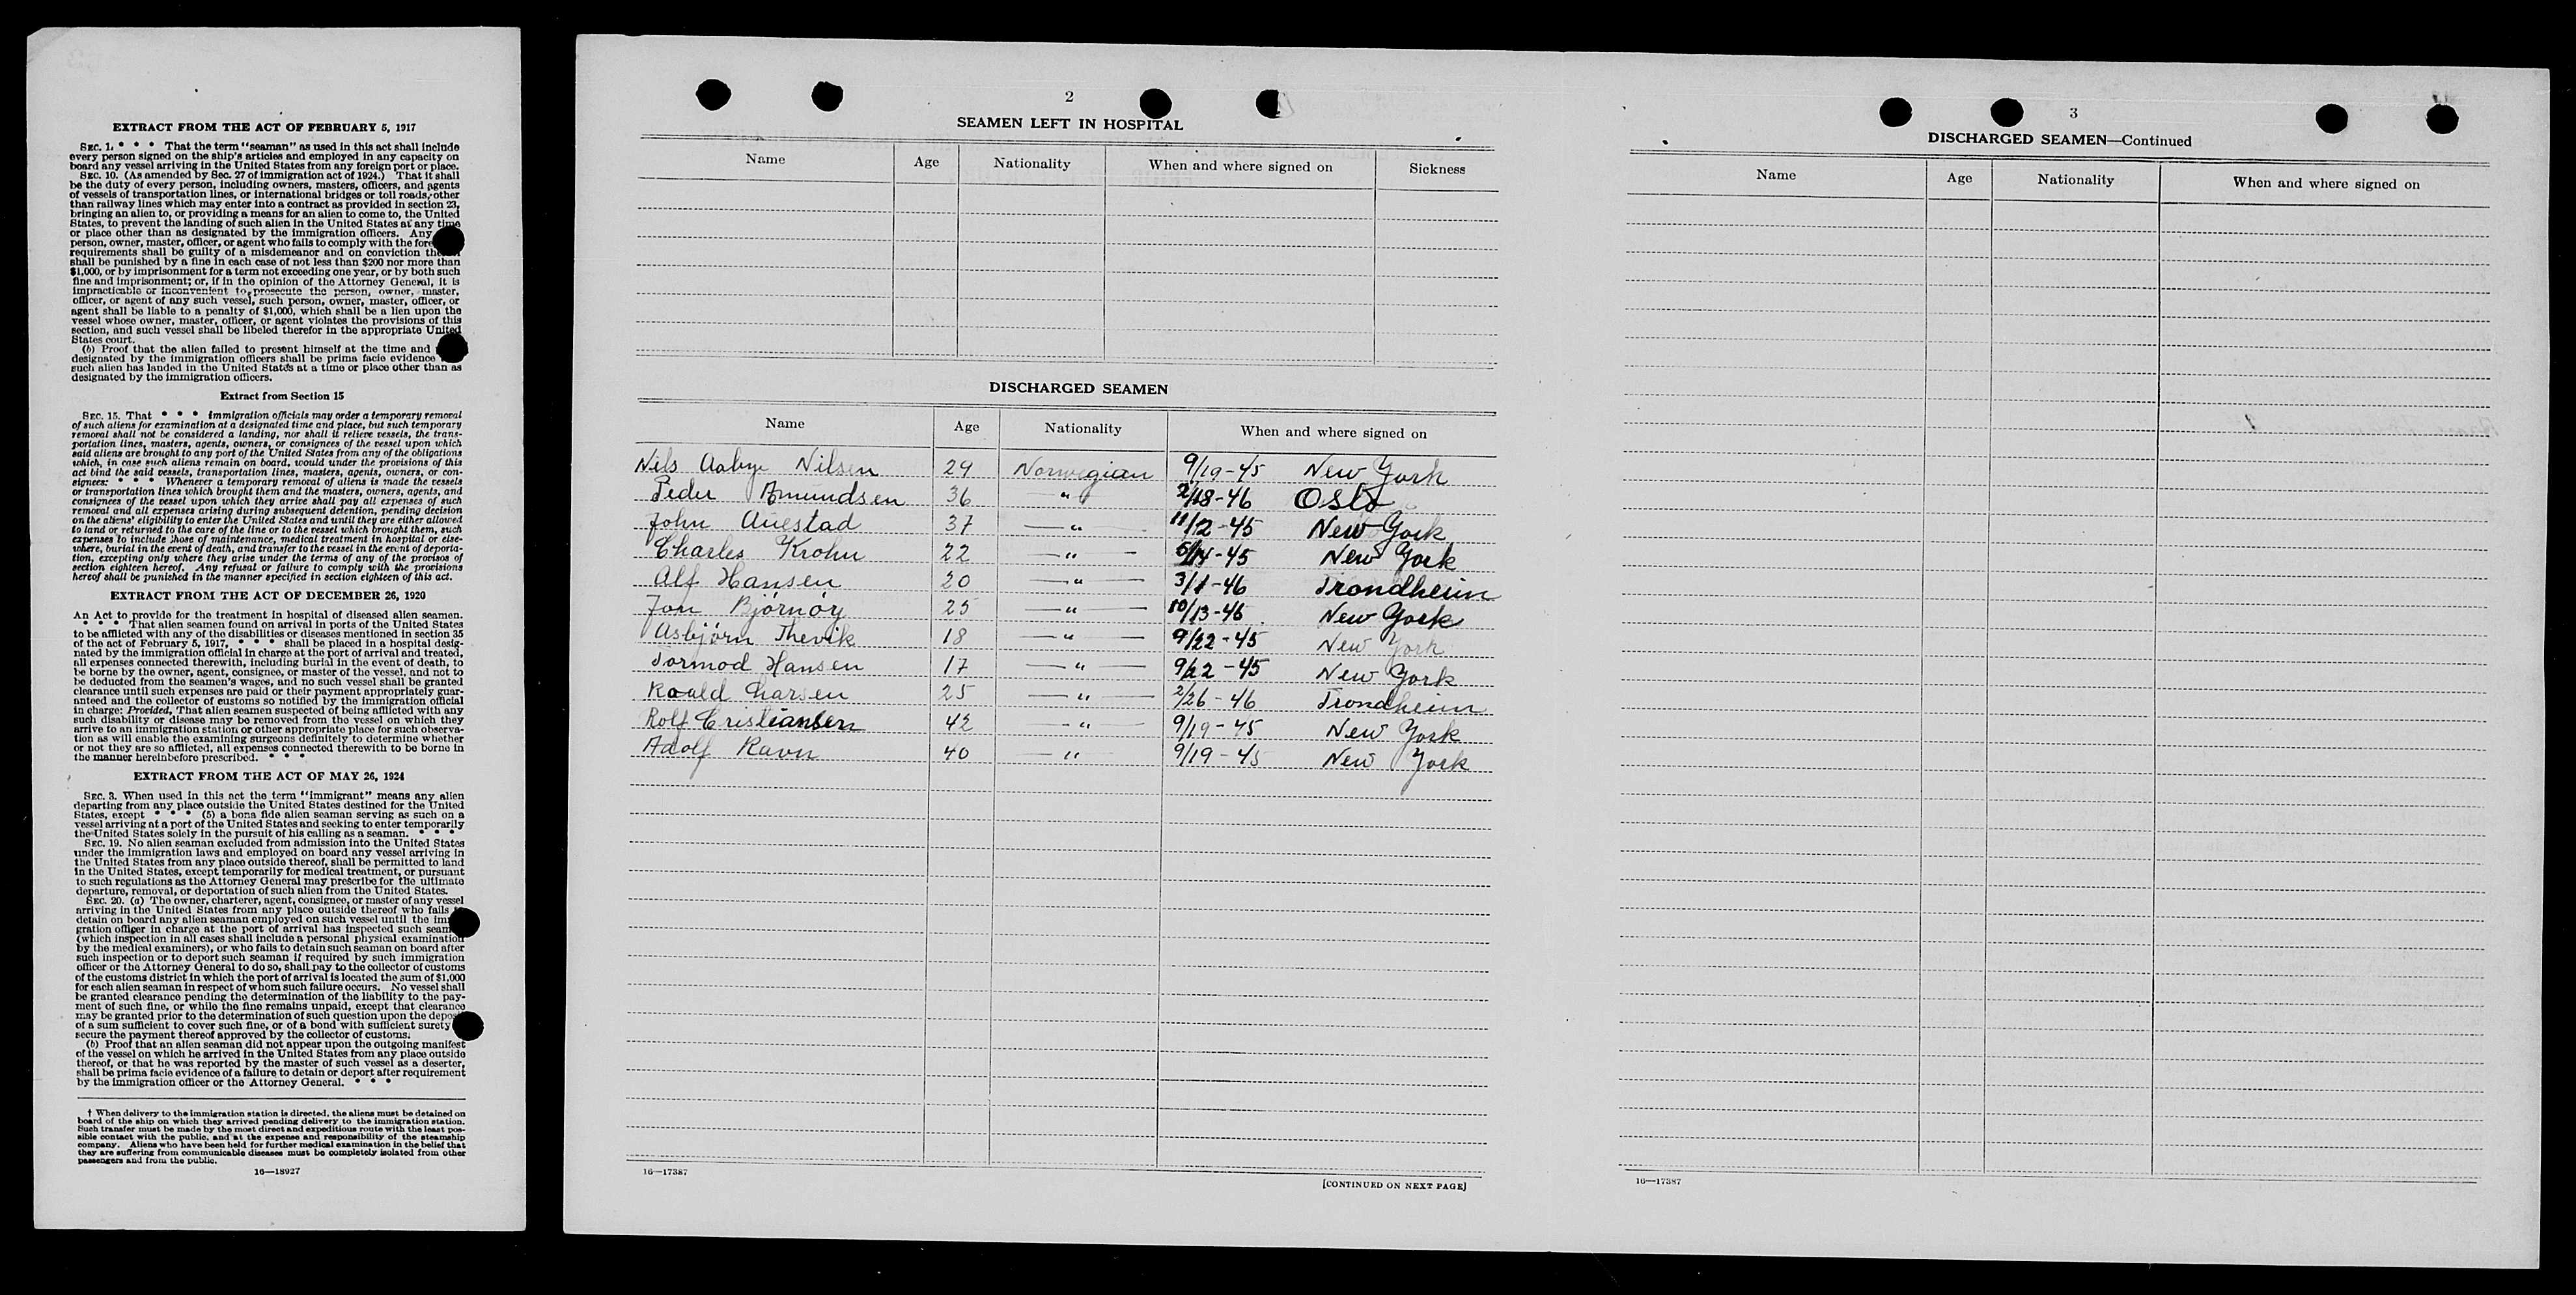 EXTRACT FROM THE ACT OF FEBRUARY 5, 1917
SEC. 1. * * * That the term "seaman" as used in this act shall include
every person signed on the ship's articles and employed in any capacity on
board any vessel arriving in the United States from any foreign port or place.
SEC. 10. (As amended by Sec. 27 of immigration act of 1924.) That it shall
be the duty of every person, including owners, masters, officers, and agents
of vessels of transportation lines, or international bridges or toll roads, other
than railway lines which may enter into a contract as provided in section 23,
bringing an alien to, or providing a means for an alien to come to, the United
States, to prevent the landing of such alien in the United States at any time
or place other than as designated by the immigration officers. Any
person, owner, master, officer, or agent who fails to comply with the fore
requirements shall be guilty of a misdemeanor and on conviction the
shall be punished by a fine in each case of not less than $200 nor more than
$1,000, or by imprisonment for a term not exceeding one year, or by both such
fine and imprisonment; or, if in the opinion of the Attorney General, it is
impracticable or inconvenient to prosecute the person, owner, master,
officer, or agent of any such vessel, such person, owner, master, officer, or
agent shall be liable to a penalty of $1,000, which shall be a lien upon the
vessel whose owner, master, officer, or agent violates the provisions of this
section, and such vessel shall be libeled therefor in the appropriate United
States court.
(b) Proof that the alien failed to present himself at the time and
designated by the immigration officers shall be prima facie evidence
such alien has landed in the United States at a time or place other than as
designated by the immigration officers.
Extract from Section 15
SEC. 15. That * * * immigration officials may order a temporary removal
of such aliens for examination at a designated time and place, but such temporary
removal shall not be considered a landing, nor shall it relieve vessels, the trans-
portation lines, masters, agents, owners, or consignees of the vessel upon which
said aliens are brought to any port of the United States from any of the obligations
which, in case such aliens remain on board, would under the provisions of this
act bind the said vessels, transportation lines, masters, agents, owners, or con-
signees: * * * Whenever a temporary removal of aliens is made the vessels
or transportation lines which brought them and the masters, owners, agents, and
consignees of the vessel upon which they arrive shall pay all expenses of such
removal and all expenses arising during subsequent detention, pending decision
on the aliens' eligibility to enter the United States and until they are either allowed
to land or returned to the care of the line or to the vessel which brought them, such
expenses to include those of maintenance, medical treatment in hospital or else-
where, burial in the event of death, and transfer to the vessel in the event of deporta-
tion, excepting only where they arise under the terms of any of the provisos of
section eighteen hereof. Any refusal or failure to comply with the provisions
hereof shall be punished in the manner specified in section eighteen of this act.
EXTRACT FROM THE ACT OF DECEMBER 26, 1920
An Act to provide for the treatment in hospital of diseased alien seamen.
* * * That alien seamen found on arrival in ports of the United States
to be afflicted with any of the disabilities or diseases mentioned in section 35
of the act of February 5, 1917, * * * shall be placed in a hospital desig-
nated by the immigration official in charge at the port of arrival and treated,
all expenses connected therewith, including burial in the event of death, to
be borne by the owner, agent, consignee, or master of the vessel, and not to
be deducted from the seamen's wages, and no such vessel shall be granted
clearance until such expenses are paid or their payment appropriately guar-
anteed and the collector of customs so notified by the immigration official
in charge: Provided, That alien seamen suspected of being afflicted with any
such disability or disease may be removed from the vessel on which they
arrive to an immigration station or other appropriate place for such observa-
tion as will enable the examining surgeons definitely to determine whether
or not they are so afflicted, all expenses connected therewith to be borne in
the manner hereinbefore prescribed. * * *
EXTRACT FROM THE ACT OF MAY 26, 1924
SEC. 3. When used in this act the term "immigrant" means any alien
departing from any place outside the United States destined for the United
States, except * * * (5) a bona fide alien seaman serving as such on a
vessel arriving at a port of the United States and seeking to enter temporarily
the United States solely in the pursuit of his calling as a seaman. * * *
SEC. 19. No alien seaman excluded from admission into the United States
under the immigration laws and employed on board any vessel arriving in
the United States from any place outside thereof, shall be permitted to land
in the United States, except temporarily for medical treatment, or pursuant
to such regulations as the Attorney General may prescribe for the ultimate
departure, removal, or deportation of such alien from the United States.
SEC. 20. (a) The owner, charterer, agent, consignee, or master of any vessel
arriving in the United States from any place outside thereof who fails
detain on board any alien seaman employed on such vessel until the imm
gration officer in charge at the port of arrival has inspected such seam
(which inspection in all cases shall include a personal physical examination
by the medical examiners), or who fails to detain such seaman on board after
such inspection or to deport such seaman if required by such immigration
officer or the Attorney General to do so, shall pay to the collector of customs
of the customs district in which the port of arrival is located the sum of $1,000
for each alien seaman in respect of whom such failure occurs. No vessel shall
be granted clearance pending the determination of the liability to the pay-
ment of such fine, or while the fine remains unpaid, except that clearance
may be granted prior to the determination of such question upon the depos
of a sum sufficient to cover such fine, or of a bond with sufficient surety
secure the payment thereof approved by the collector of customs.
(b) Proof that an alien seaman did not appear upon the outgoing manifest
of the vessel on which he arrived in the United States from any place outside
thereof, or that he was reported by the master of such vessel as a deserter,
shall be prima facie evidence of a failure to detain or deport after requirement
by the immigration officer or the Attorney General. * * *
† When delivery to the immigration station is directed, the aliens must be detained on
board of the ship on which they arrived pending delivery to the immigration station.
Such transfer must be made by the most direct and expeditious route with the least pos-
sible contact with the public, and at the expense and responsibility of the steamship
company. Aliens who have been held for further medical examination in the belief that
they are suffering from communicable diseases must be completely isolated from other
passengers and from the public.
16—18927
2
SEAMEN LEFT IN HOSPITAL
Name Age Nationality When and where signed on Sickness
DISCHARGED SEAMEN
Name Age Nationality When and where signed on
Nils Aabye Nilsen 29 Norwegian 9/19-45 New York
Peder Amundsen 36 — " 2/18-46 Oslo
John Auestad 37 — " 11/12-45 New York
Charles Krohn 22 — " — 5/14-45 New York
Alf Hansen 20 — " — 3/1-46 Trondheim
Jon Bjórnóy 25 — " — 10/13-46 New York
Asbjórn Thevik 18 — " — 9/22-45 New York
Tormod Hansen 17 — " — 9/22-45 New York
Roald Larsen 25 — " — 2/26-46 Trondheim
Rolf Cristiansen 42 — " — 9/19-45 New York
Adolf Ravn 40 — " 9/19-45 New York
16—17387
[CONTINUED ON NEXT PAGE]
3
DISCHARGED SEAMEN—Continued
Name Age Nationality When and where signed on
16—17387